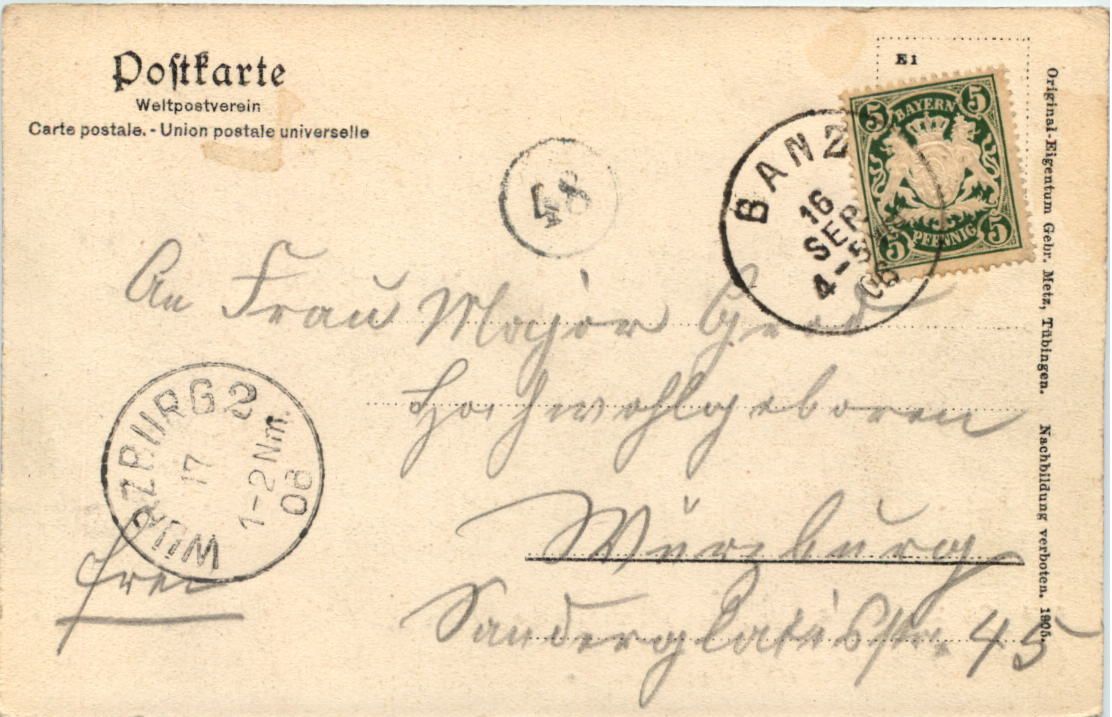 Postkarte
Weltpostverein
Carte postale. - Union postale universelle
E 1
5 5
BAYERN
PFENNIG
5 5
BANZ
16
SEP
4-5
06
48
An Frau Major
Hochwohlgeboren
Würzburg
45
WÜRZBURG 2
17
1-2 Nm.
06
frei
Original-Eigentum Gebr. Metz, Tübingen. Nachbildung verboten. 1905.